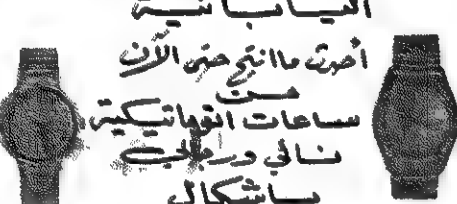 اليابانية
أحدث ما انتج حتى الآن
من
ساعات اتوماتيكية
نسائي ورجالي
باشكال